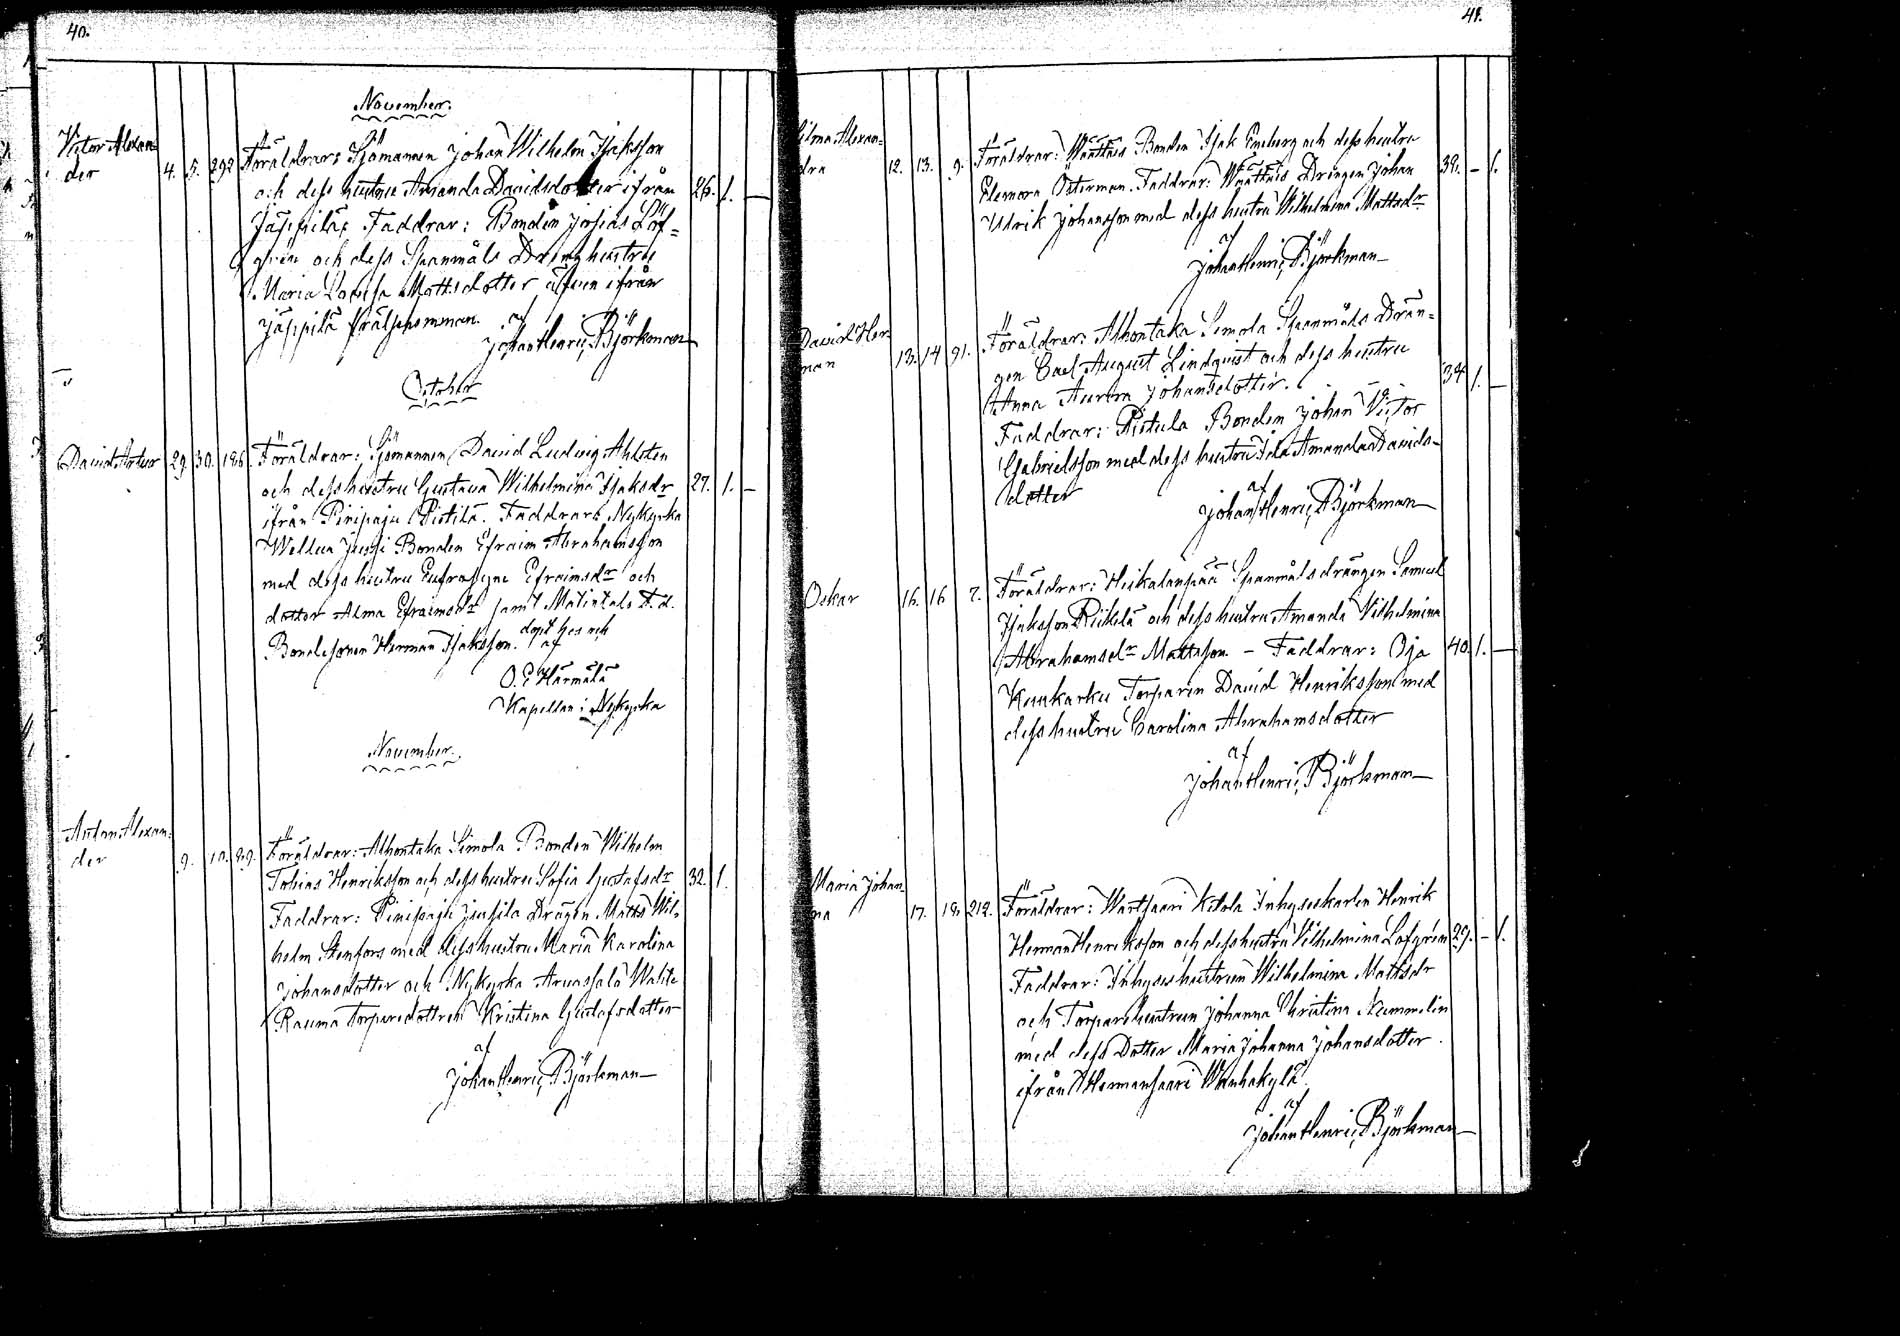 40.
November.
Victor Alexan=
der 4. 5. 292 Föräldrar: Sjömannen Johan Wilhelm Isaksson
och dess hustru Amanda Davidsdotter ifrån 26. 1. —
Jäppilä, Faddrar: Bonden Josias Löf=
gren och dess Spanmåls Dräng hustru
Maria Lovisa Mattsdotter äfven ifrån
Jäppilä
af
Johan Henric Björkman
October
David Artur 29. 30. 186. Föräldrar: Sjömannen David Ludvig Ahlsten
och dess hustru Gustava Wilhelmina Isaksdr 27. 1. —
ifrån Pinipaju Pietilä. Faddrar: Nykyrka
Bonden Efraim Abrahamsson
med dess hustru Eufrosyne Efraimsdr och
dotter Alma Efraimsdr samt F.d.
Bondesonen Herman Isaksson. döpt hos och
af
O. E Härmälä
Kapellan i Nykyrka
November.
Anton Alexan=
der 9. 10. 89. Föräldrar: Alhontaka Simola Bonden Wilhelm
Tobias Henriksson och dess hustru Sofia Gustafsdr 32. 1.
Faddrar: Pinipaju Jussila Drägen Matts Wil=
helm Stenfors med dess hustru Maria Karolina
Johansdotter och Nykyrka Arvassalo
Rauma Torparedottren Kristina Gustafsdotter
af
Johan Henric Björkman
41.
Alexan=
dra 12. 13. 9. Föräldrar: Bonden Isak Eneberg och dess hustru
Eleonora Österman. Faddrar: Drängen Johan 39. – 1.
Ulrik Johansson med dess hustru Wilhelmina Mattsdr
af
Johan Henric Björkman
David Her=
man 13. 14 91. Föräldrar: Alhontaka Simola Spanmåls Drän=
gen Carl August Lindquist och dess hustru
Anna Aurora Johansdotter. 34 1. —
Faddrar: Pistula Bonden Johan Victor
Gabrielsson med dess hustru Ida Amanda Davids=
dotter
af
Johan Henric Björkman
Oskar 16. 16 7. Föräldrar: Heikalanpää Spanmålsdrängen Samuel
Isaksson Rikilä och dess hustru Amanda Vilhelmina
Abrahamsdr Mattsson. – Faddrar: Oja 40. 1. —
Kuukarku Torparen David Henriksson med
dess hustru Carolina Abrahamsdotter
af
Johan Henric Björkman
Maria Johan
na 17. 18. 212. Föräldrar: Wartsaari Ketola Inhyseskarlen Henrik
Herman Henriksson och dess hustru Vilhelmina Löfgren 29. – 1.
Faddrar: Inhyses hustrun Wilhelmina Mattsdr
och Torparehustrun Johanna Christina Nummelin
med dess Dotter Maria Johanna Johansdotter.
ifrån Hermansaari Wanhakylä.
af
Johan Henric Björkman